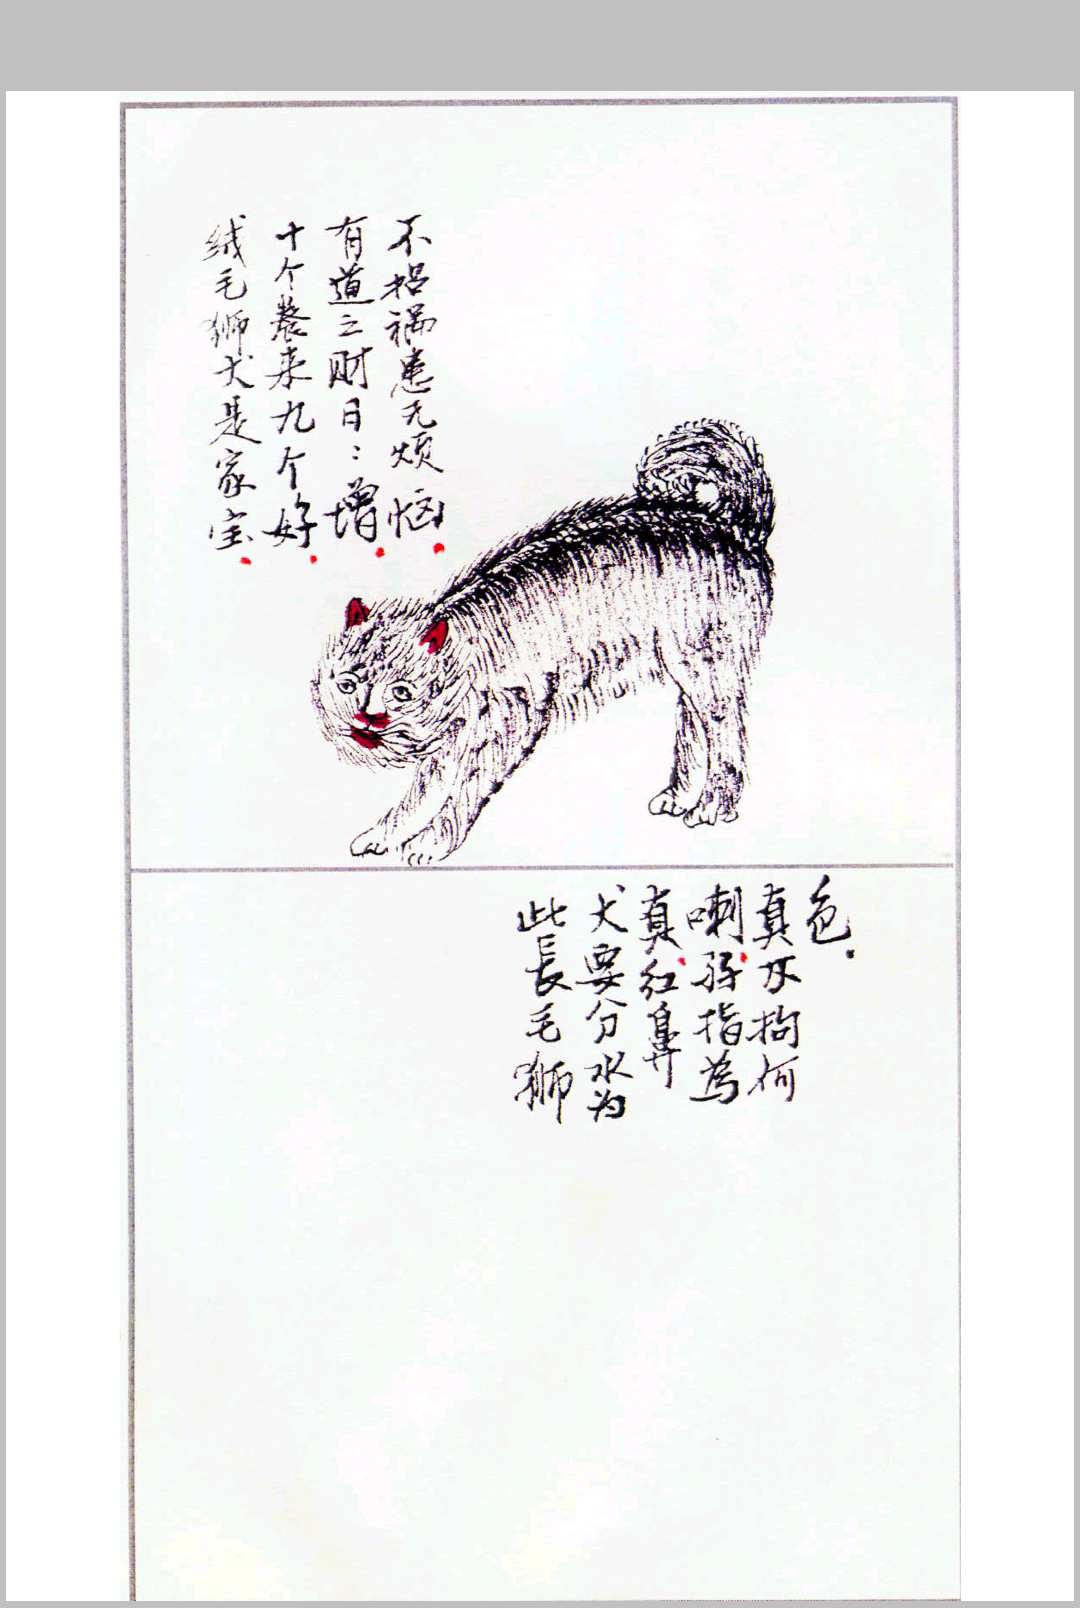 绒毛狮犬是家宝.
十个養来九个好.
有道之财日：增.
不招祸患无烦恼.
此長毛狮
犬要分水为
真.红鼻
喇.孖指為
真不拘何
色.